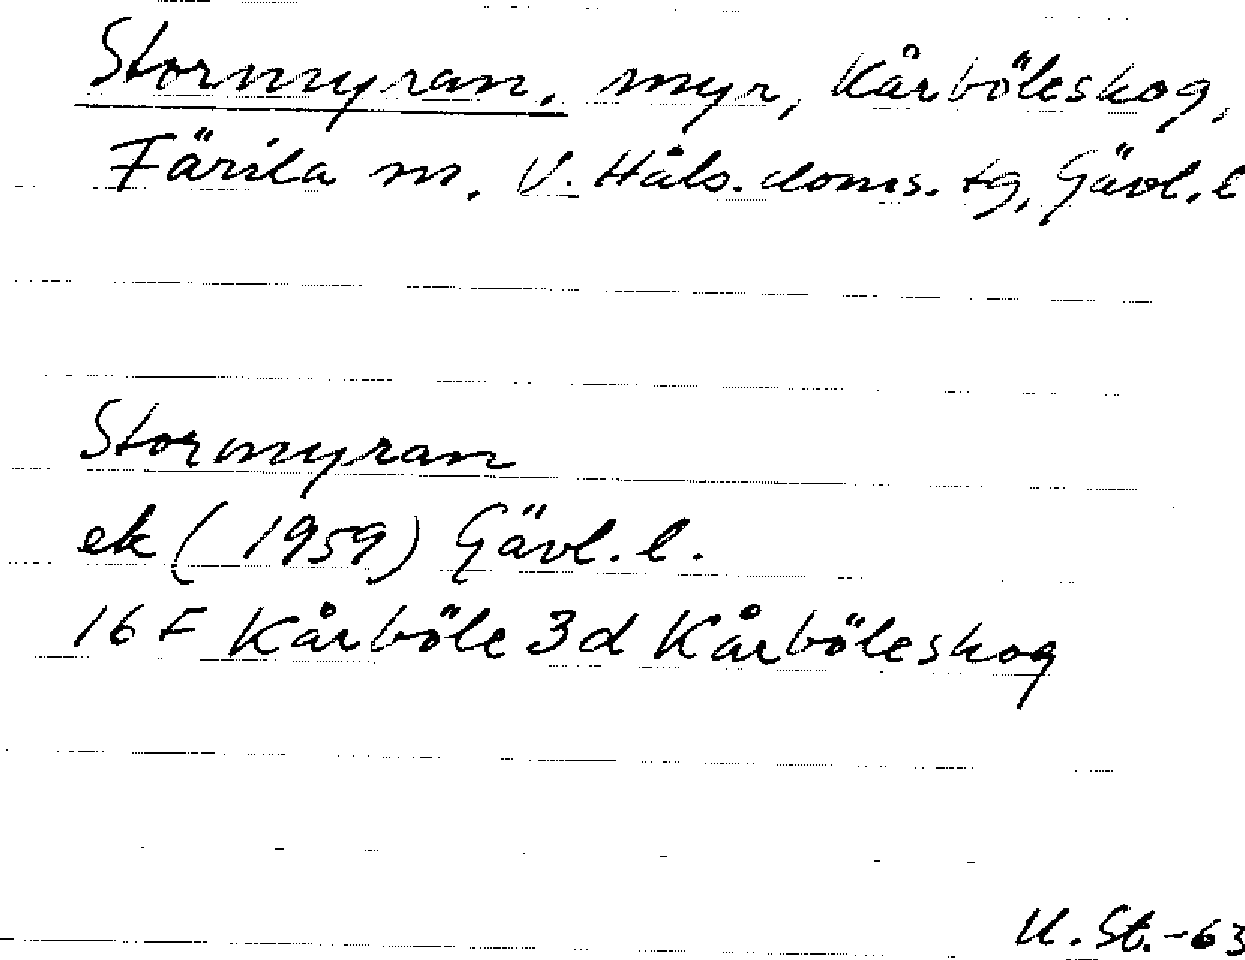 Stormyran, myr, Kårböleskog,
Färila sn. V. Häls. doms. tg, Gävl. l
Stormyran
ek (1959) Gävl. l.
16 F Kårböle 3d Kårböleskog
U. St. -63